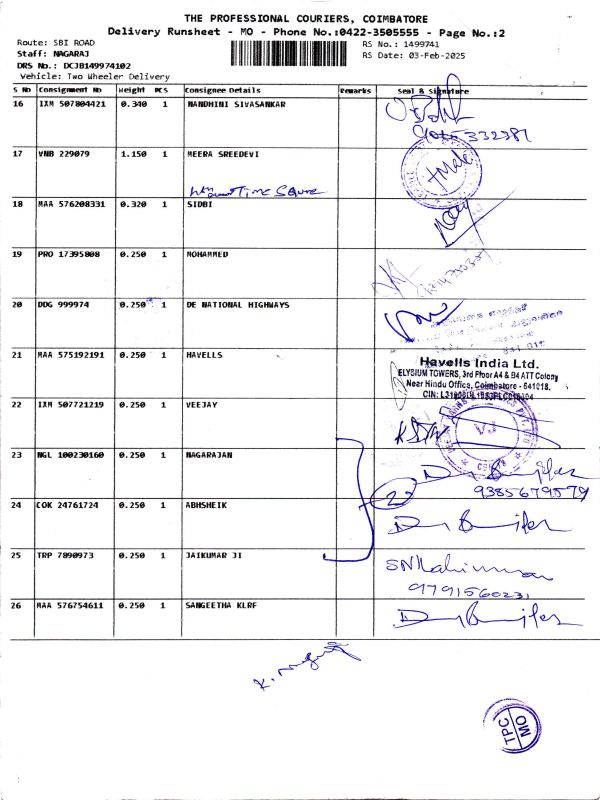 THE PROFESSIONAL COURIERS, COIMBATORE
Delivery Runsheet - MO - Phone No.:0422-3505555 - Page No.:2
Route: SBI ROAD
RS No.: 1499741
Staff: NAGARAJ
RS Date: 03-Feb-2025
DRS No.: DCJB149974102
Vehicle: Two Wheeler Delivery
S No Consignment No Weight PCS Consignee Details Remarks Seal & Signature
16 IXM 507804421 0.340 1 NANDHINI SIVASANKAR
17 VNB 229079 1.150 1 MEERA SREEDEVI
Time Square
18 MAA 576208331 0.320 1 SIDBI
19 PRO 17395808 0.250 1 MOHAMMED
20 DDG 999974 0.250 1 DE NATIONAL HIGHWAYS
21 MAA 575192191 0.250 1 HAVELLS
Havells India Ltd.
ELYSIUM TOWERS, 3rd Floor A4 & B4 ATT Colony
Near Hindu Office, Coimbatore - 641018.
22 IXM 507721219 0.250 1 VEEJAY
VJ
23 NGL 100230160 0.250 1 NAGARAJAN
9385679579
2
24 COK 24761724 0.250 1 ABHSHEIK
25 TRP 7890973 0.250 1 JAIKUMAR JI
9791560231
26 MAA 576754611 0.250 1 SANGEETHA KLRF
TPC
MO